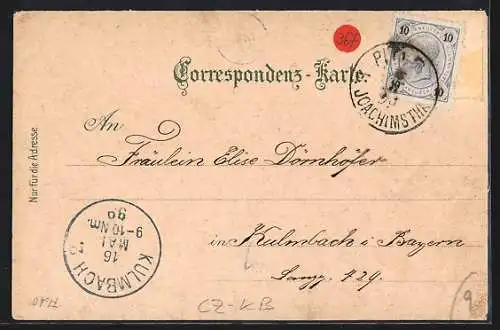 367
10 10
Correspondenz-Karte.
JOACHIMSTHAL
An
Fräulein Elise Dörnhöfer
in Kulmbach i Bayern
429.
Nur für die Adresse.
KULMBACH
16
MAI
9-10 Nm.
99
CZ-KB